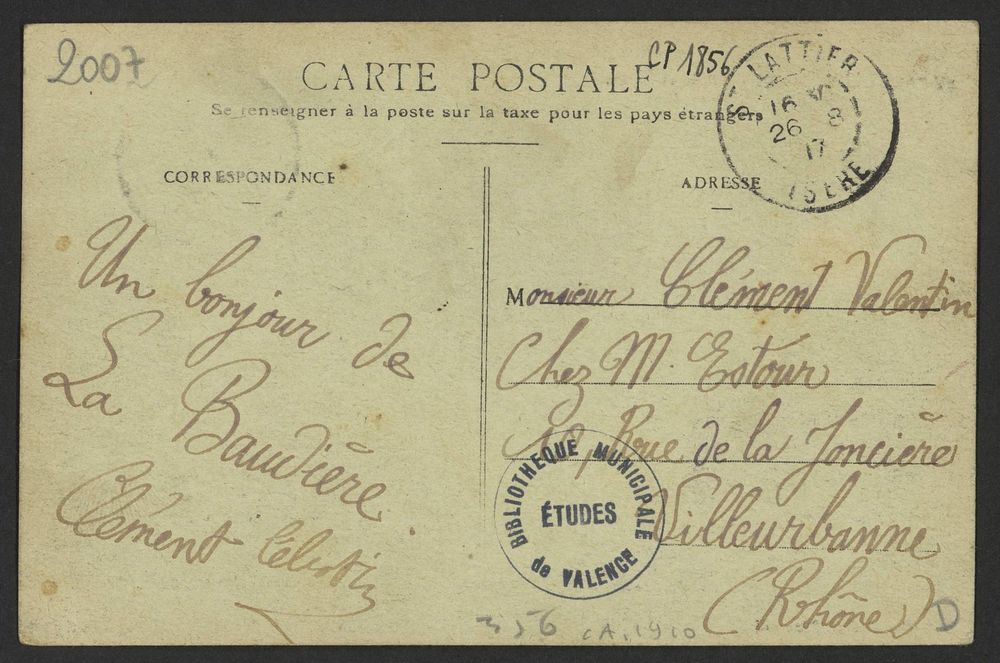 2007
CP 1856
CARTE POSTALE
Se renseigner à la poste sur la taxe pour les pays étrangers
ST LATTIER
16
26 8
17
ISERE
CORRESPONDANCE
ADRESSE
Un bonjour de
La Baudière
Clément Célestin
Monsieur Clément Valentin
Chez M. Estour
Rue de la Joncière
Villeurbanne
(Rhône)
BIBLIOTHEQUE MUNICIPALE
ÉTUDES
de VALENCE
CA. 1910
D